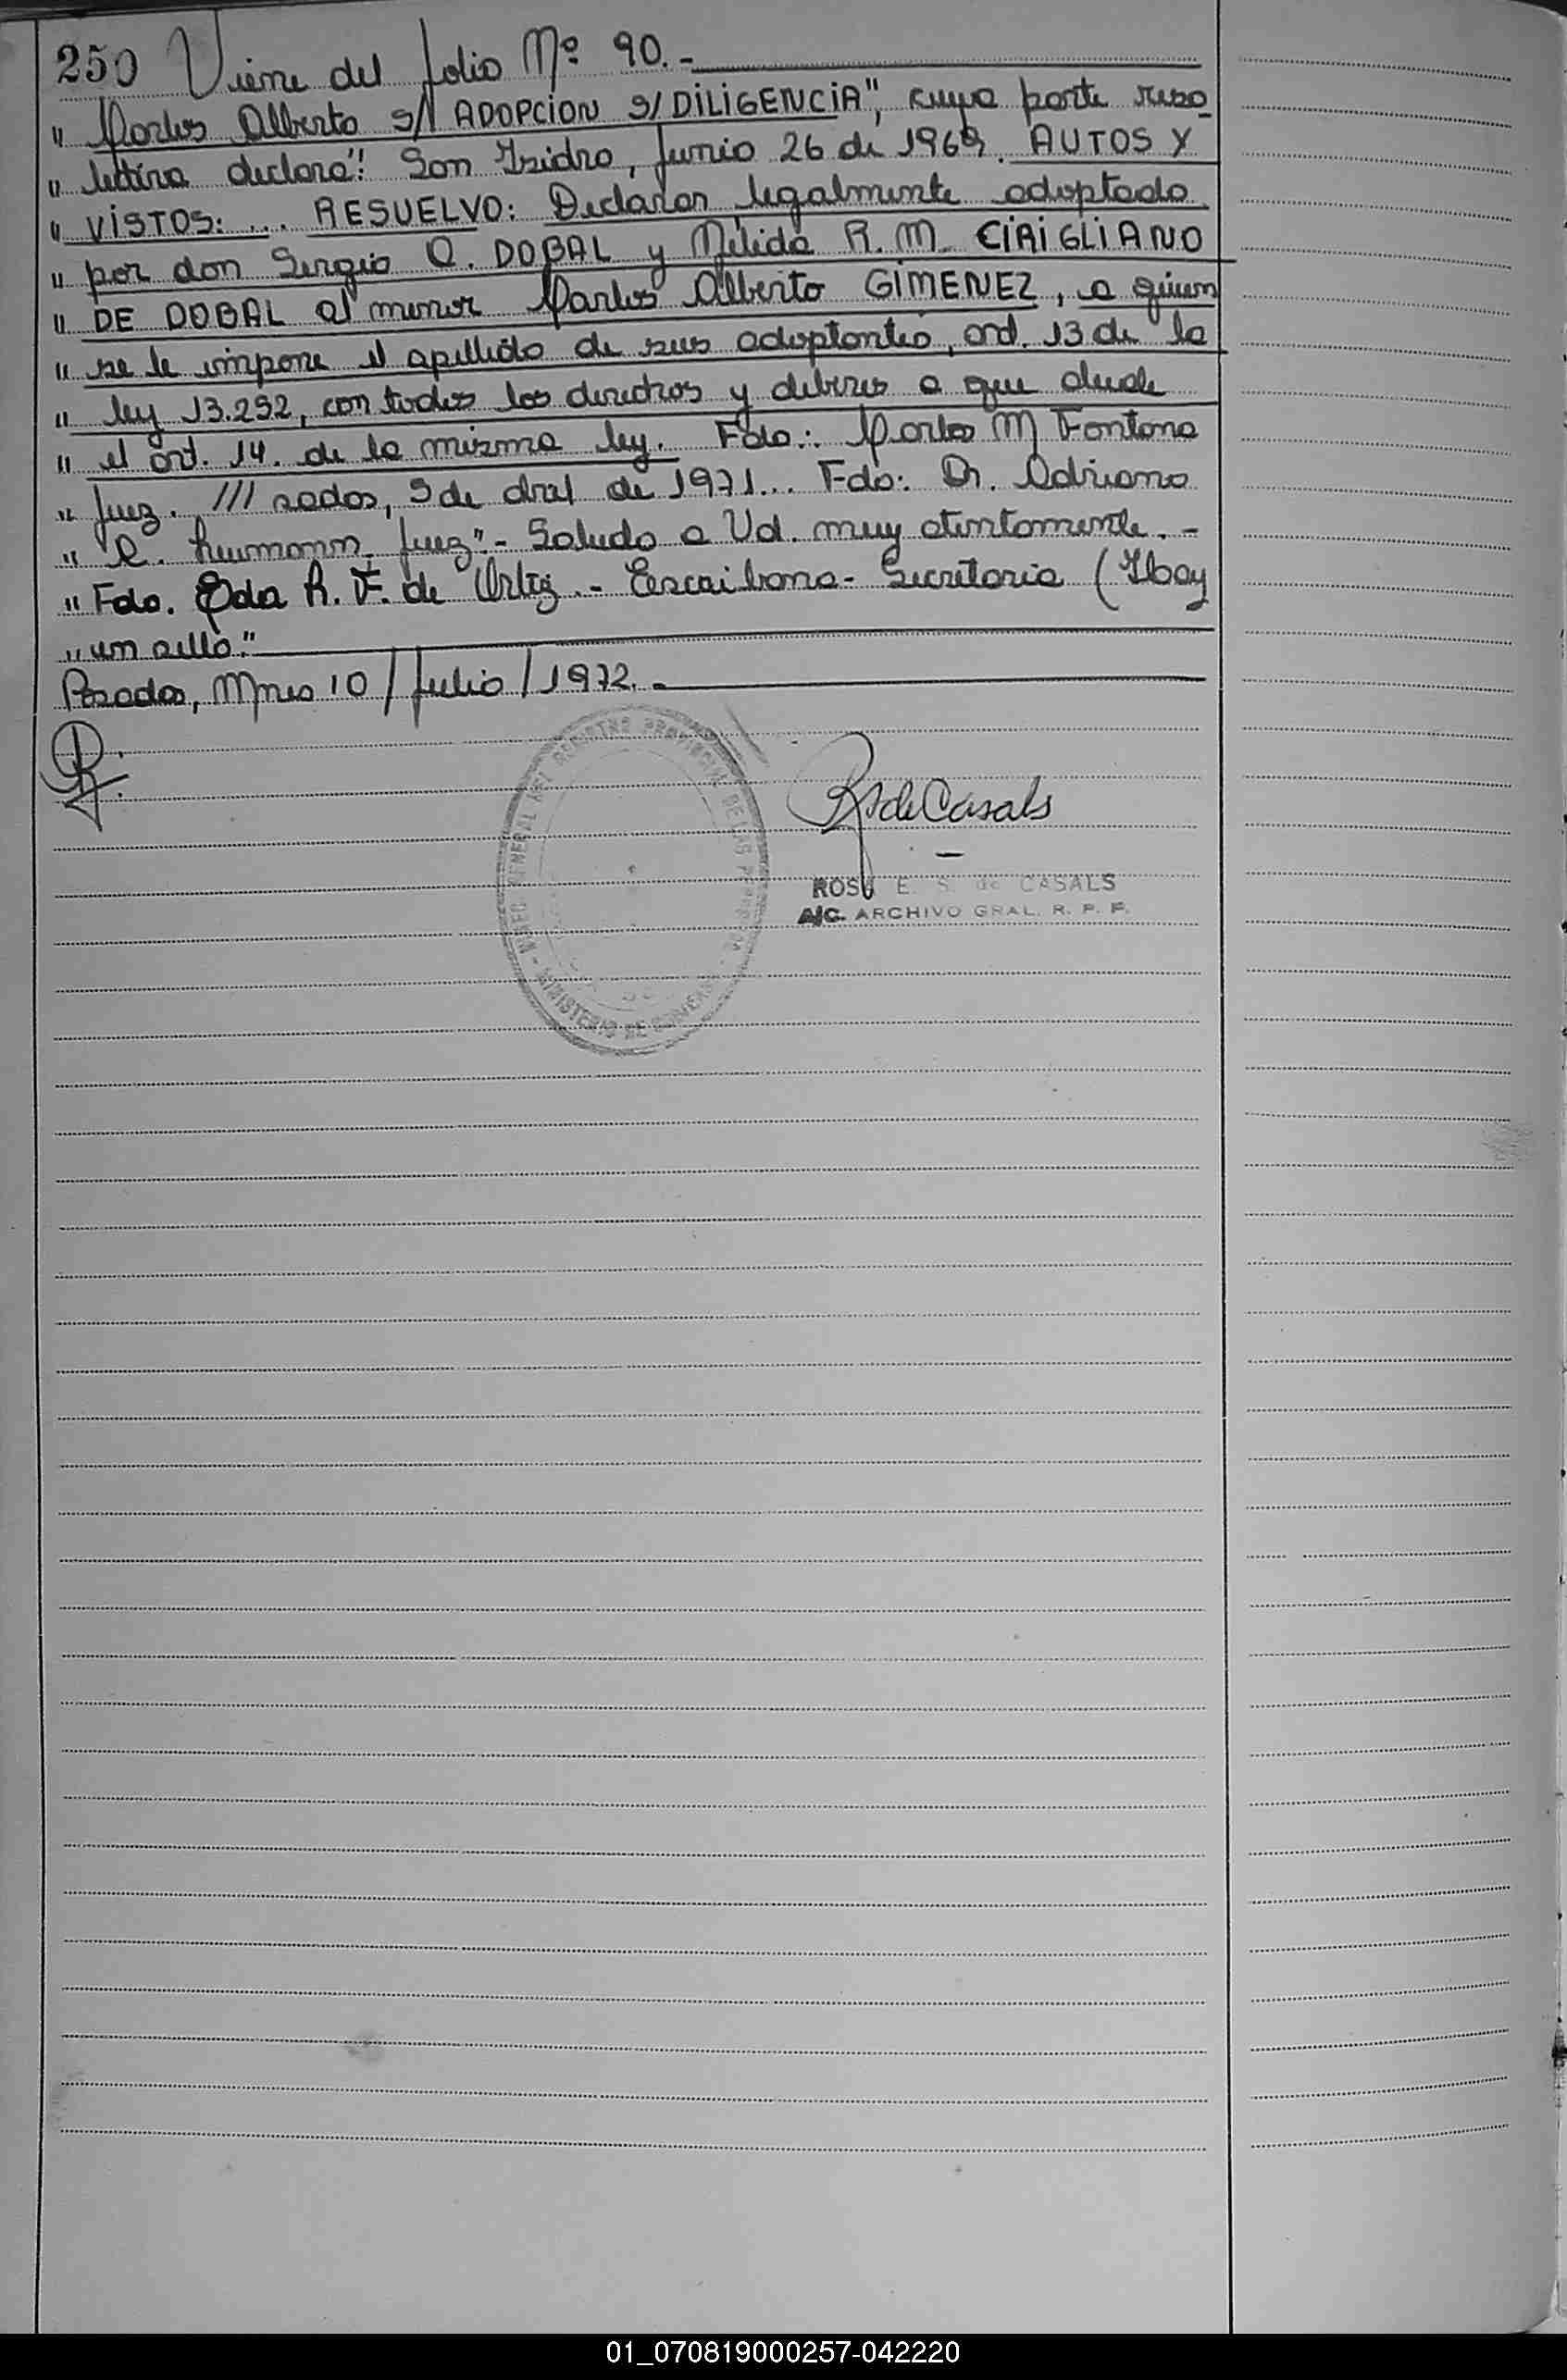 250 Viene del folio Nº 90.-
" Carlos Alberto s/ ADOPCION S/DILIGENCIA", cuya parte reso_
" lutiva declara": San Isidro, Junio 26 de 1969. AUTOS Y
" VISTOS: ... RESUELVO: Declarar legalmente adoptado
" por don Sergio O. DOBAL y Nélida R. M. CIRIGLIANO
" DE DOBAL al menor Carlos Alberto GIMENEZ, a quien
" se le impone el apellido de sus adoptantes, art. 13 de la
" ley 13.252, con todos los derechos y deberes a que alude
" el art. 14. de la misma ley. Fdo.: Carlos M Fontana
" Juez. /// sadas, 5 de abral de 1971... Fdo: Dr. Adriano
" Juez".- Saludo a Ud. muy atentamente.-
" Fdo. Eda R. F. de Ortiz.- Escribana- Secretaria (Hay
" un sello."
Posadas, Mnes 10/Julio/1972.-
R de Casals
ROSA E. S. de CASALS
A/C. ARCHIVO GRAL. R. P. P.
REGISTRO PROVINCIAL DE LAS PERSONAS
MINISTERIO DE GOBIERNO
01_070819000257-042220